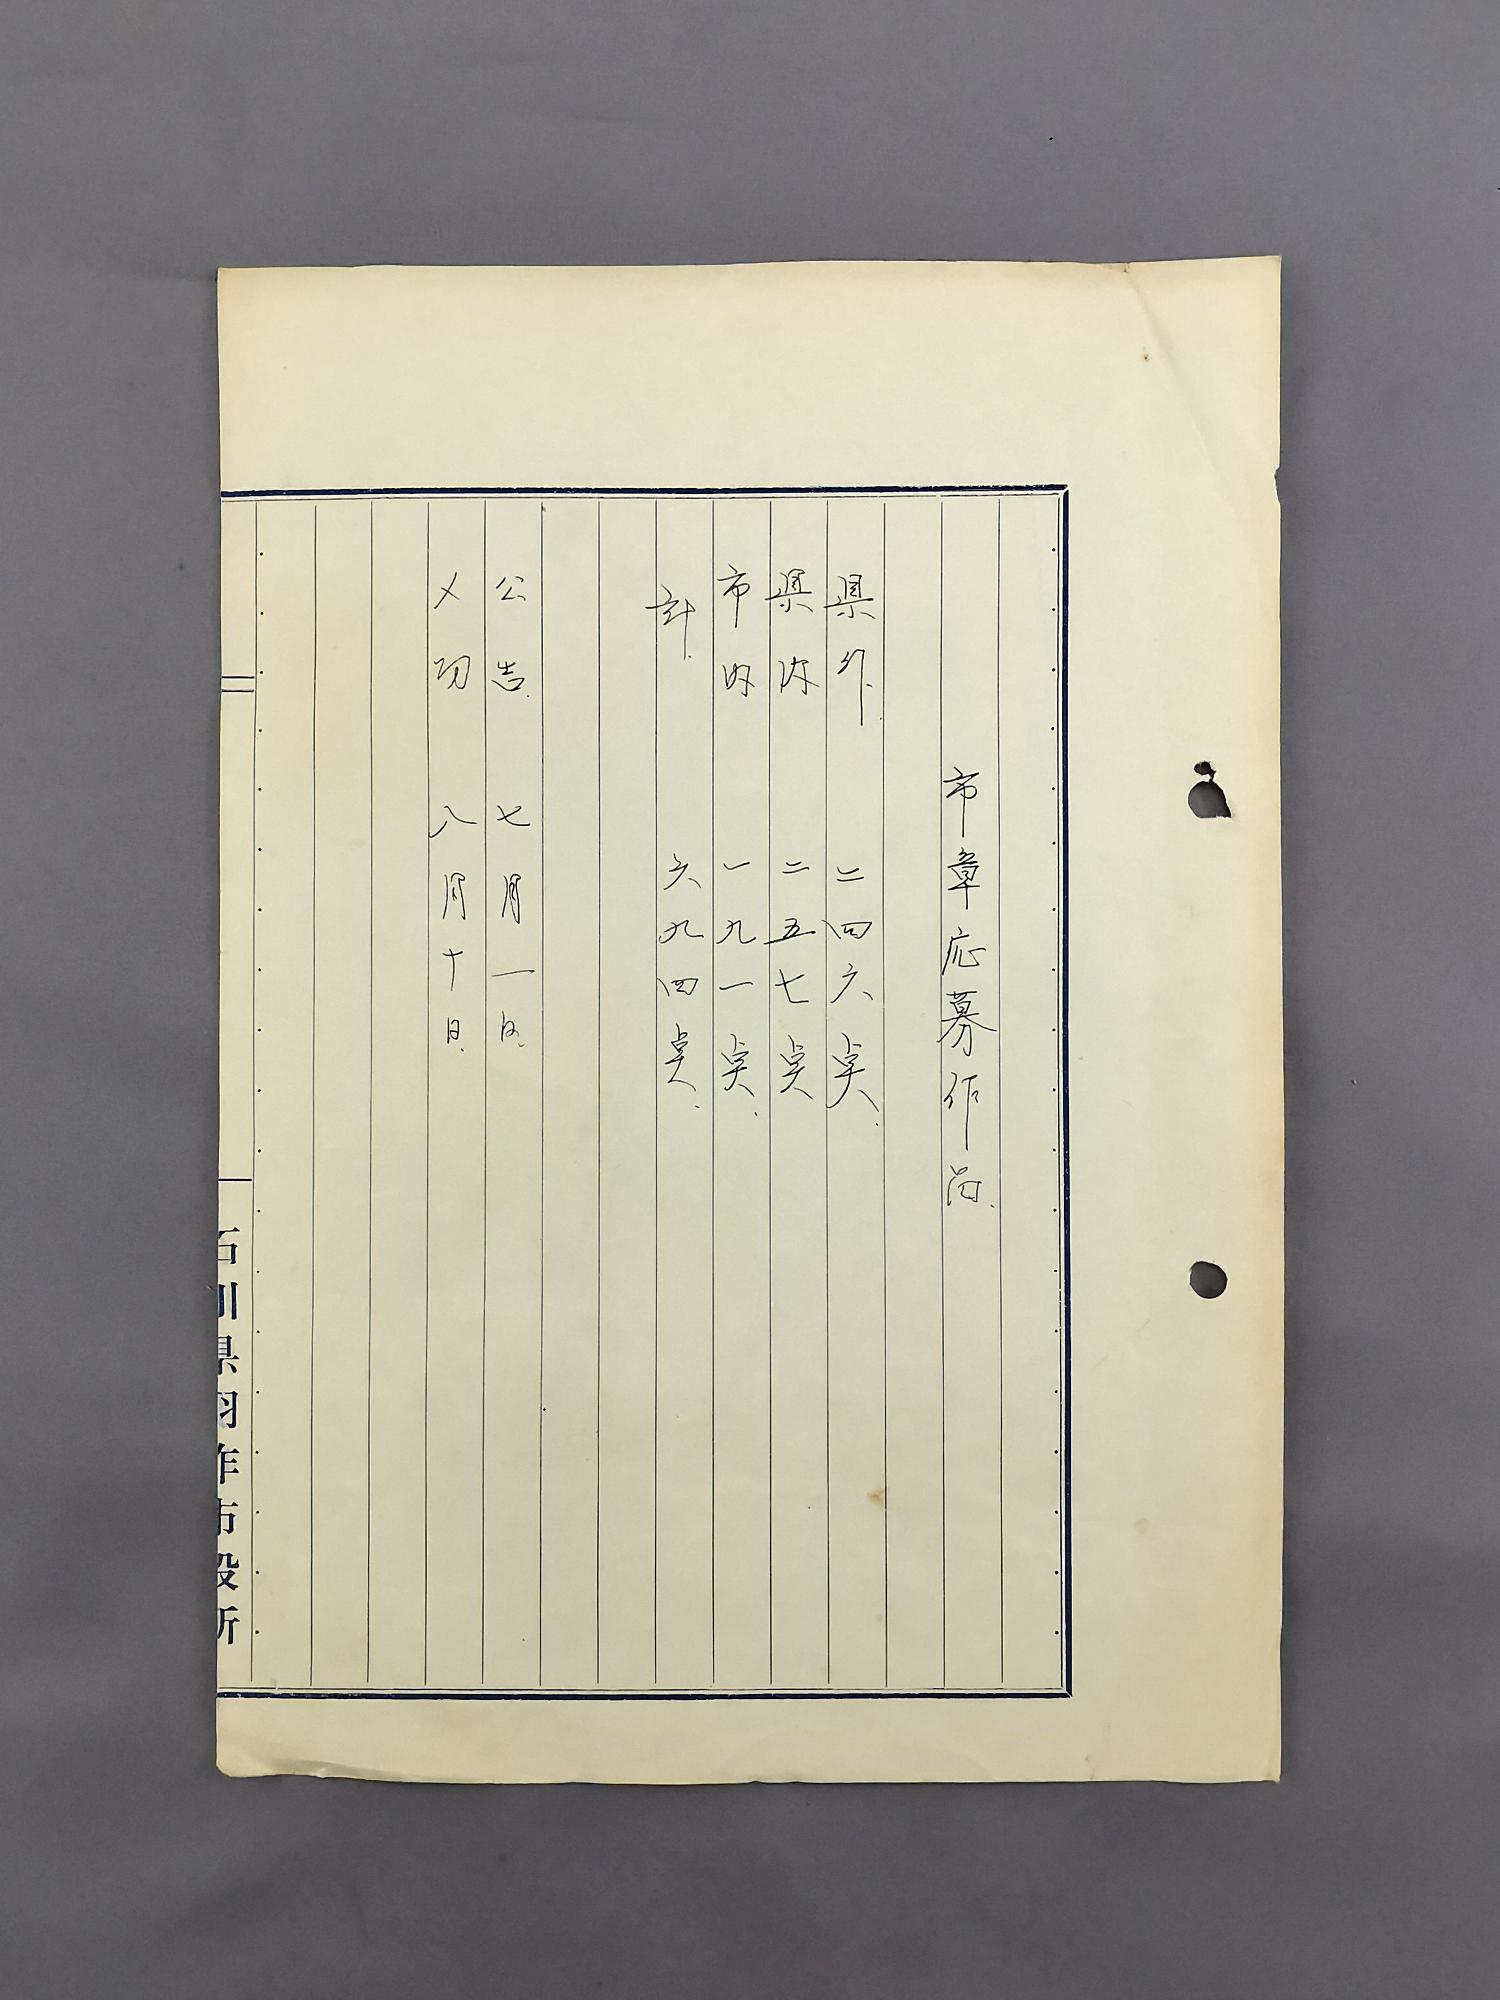 市章応募作品
県外 二四六点
県内 二五七点
市内 一九一点
計 六九四点
公告 七月一日
〆切 八月十日
石川県羽咋市役所